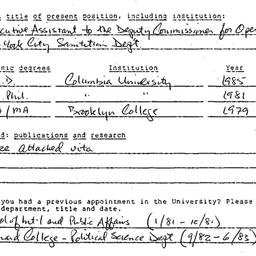 title of present position, including institution:
ecutive Assistant to the Deputy Commissioner for Oper
York City Sanitation Dept
mic degrees Institution Year
.D Columbia University 1985
Phil. " " 1981
A/MA Brooklyn College 1979
d: publications and research
ee attached vita
you had a previous appointment in the University? Please
department, title and date.
ol of Int'l and Public Affairs (1/81 - 12/81)
nard College - Political Science Dept (9/82 - 6/83)